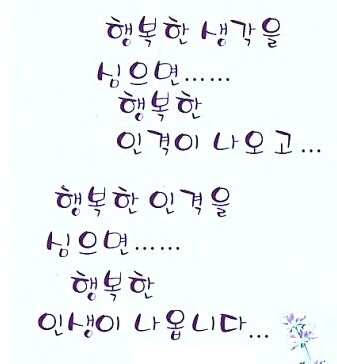 행복한 생각을
심으면......
행복한
인격이 나오고...
행복한 인격을
심으면......
행복한
인생이 나옵니다...